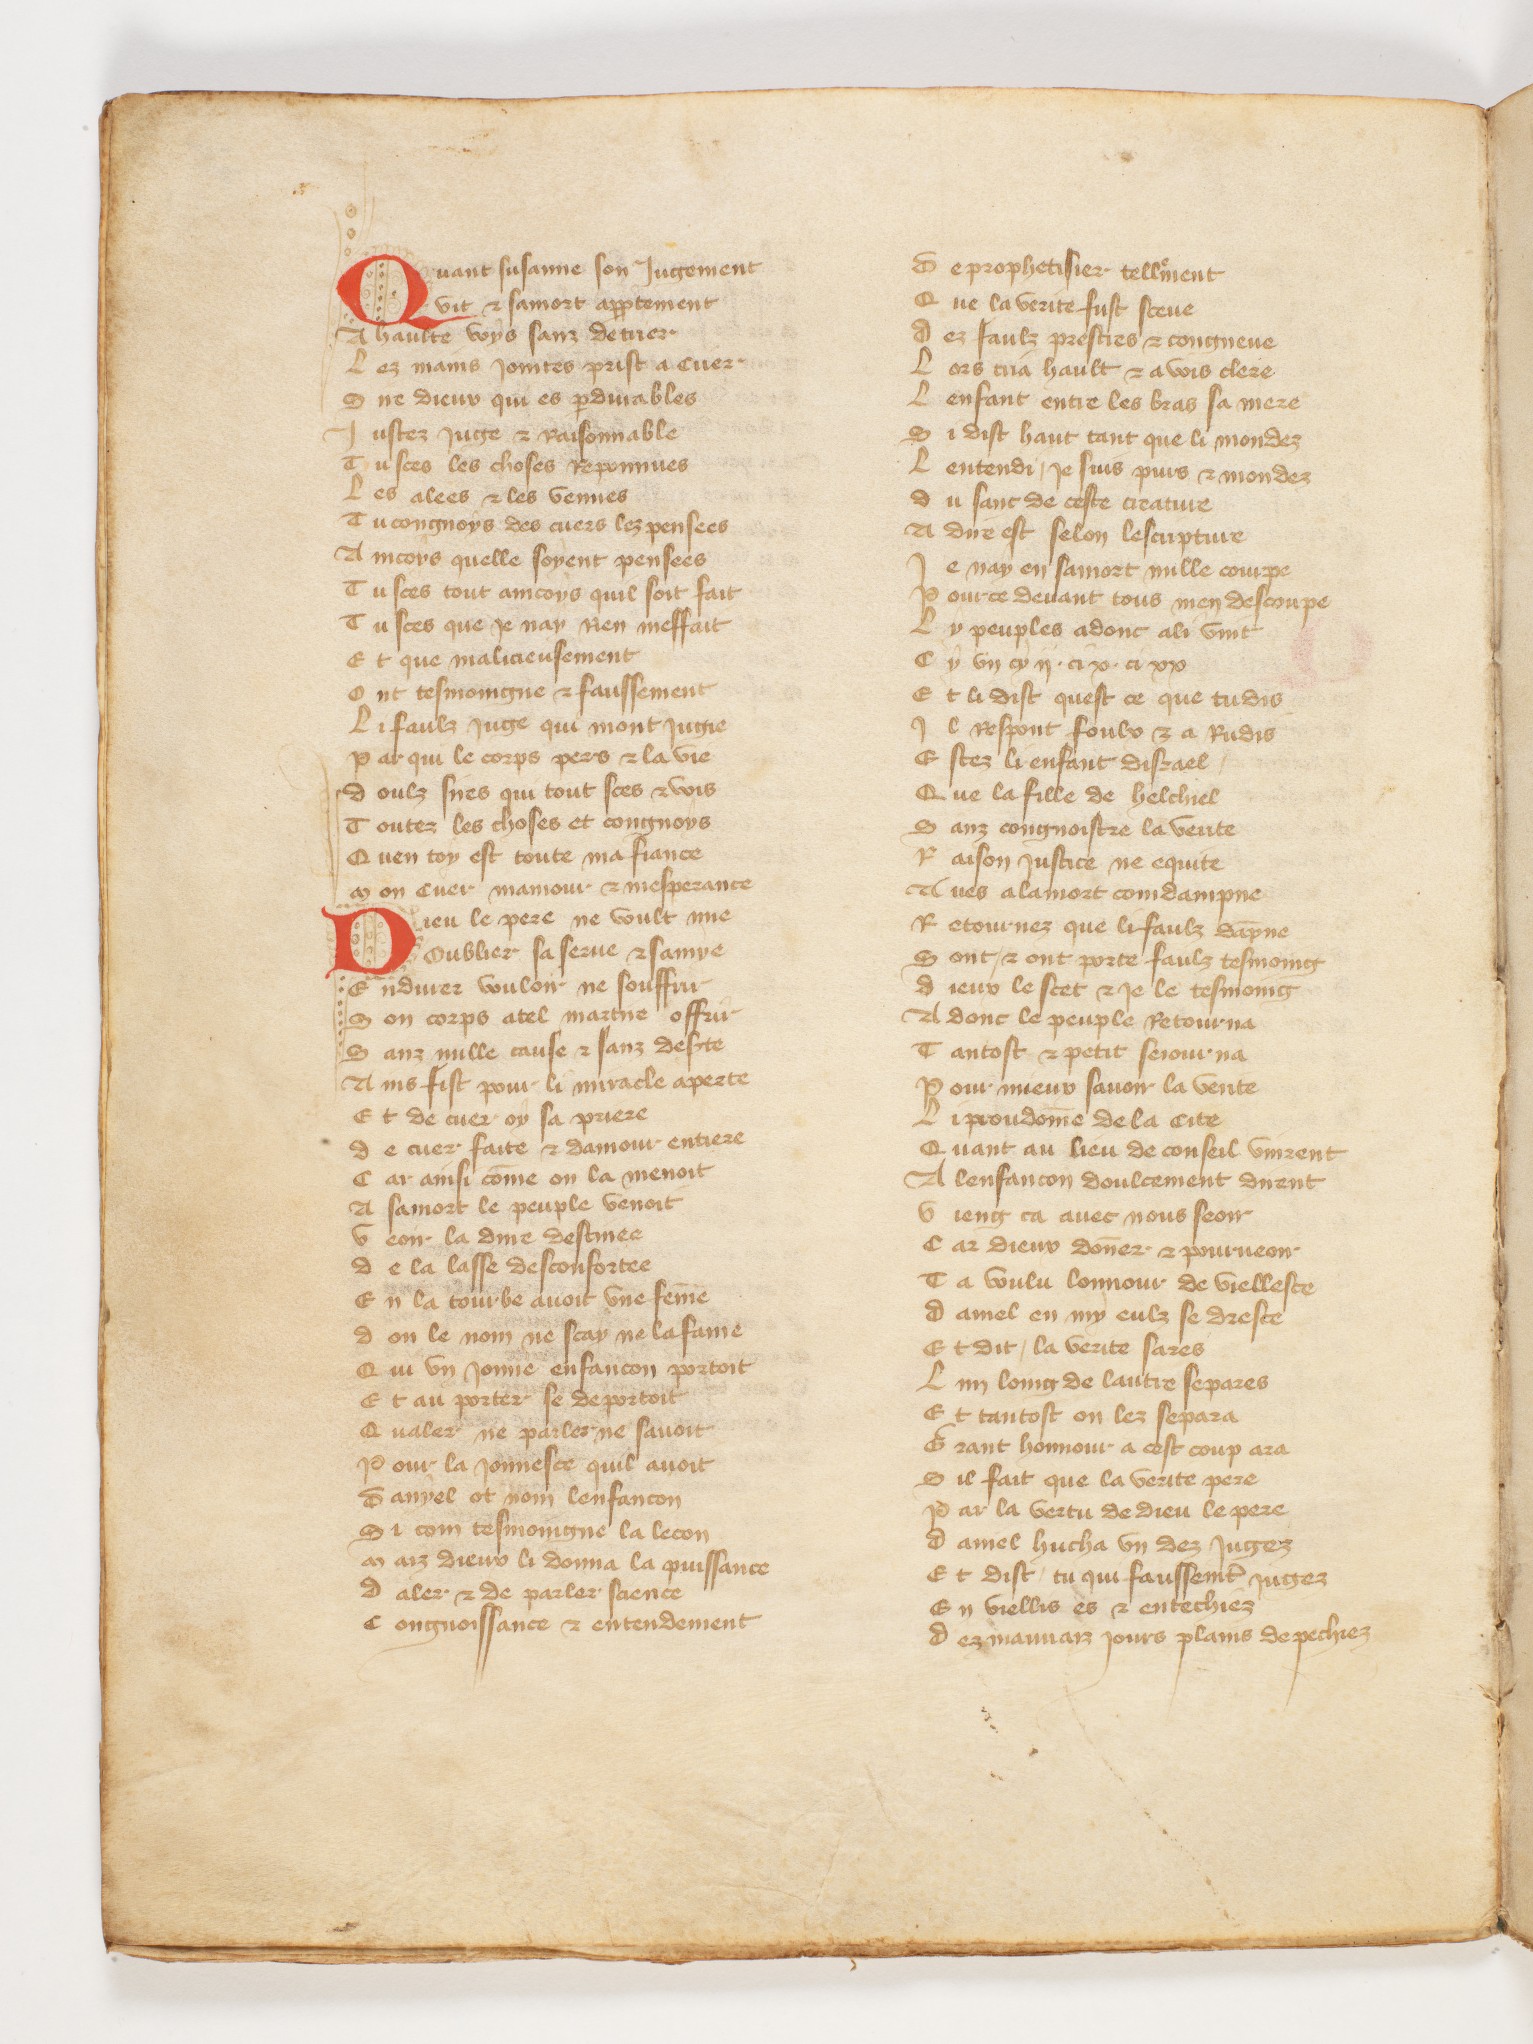 Quant susanne son Jugement
vit ⁊ samort apꝑtement
A haulte voys sanz detrier
Lez mains Jointes prist a Cuer
Sire dieux qui es ꝑdurables
Justez Juge ⁊ Raisonnable
Tu sces les choses Reponnues
Les alees ⁊ les venues
Tu congnoys des cuers lez pensees
Aincoys quelle soyent pensees
Tu sces tout aincoys quil soit fait
Tu sces que Je nay Rien meffait
Et que malicieusement
Ont tesmoingne ⁊ faussement
Li faulz Juge qui mont Jugie
Par qui le corps pers ⁊ la vie
doulz sires qui tout sces ⁊ vois
Toutez les choses et congnoys
Quen toy est toute ma fiance
mon Cuer mamour ⁊ mesperance
Dieu le pere ne voult mie
Oublier sa serue ⁊ samye
Endurer vouloir ne souffrir
Son corps atel martire offrir
Sanz nulle cause ⁊ sanz deserte
Ains fist pour li miracle aperte
Et de cuer oy sa priere
de cuer faite ⁊ damour entiere
Car ainsi cōme on la menoit
A samort le peuple venoit
Veoir la dure destinee
de la lasse desconfortee
En la tourbe auoit vne fēme
don le nom ne scay ne la fame
Qui vn Jonne enfancon portoit
Et au porter se deportoit
Qualer ne parler ne sauoit
Pour la Jonnesce quil auoit
Danyel ot nom lenfancon
Si com tesmoingne la lecon
maiz dieux li donna la puissance
daler ⁊ de parler science
Congnoissance ⁊ entendement
De prophetisier tellement
Que la verite fust sceue
dez faulz prestres ⁊ congneue
Lors cria hault ⁊ a vois clere
Lenfant entre les bras sa mere
Si dist haut tant que li mondez
Lentendi / Je suis purs ⁊ mondez
du sanc de ceste creature
A dire est selon lescripture
Je nay en samort nulle courpe
Pource deuant tous men descoupe
Ly peuples adonc ali vint
Cy vn cy ij. ci x. ci xx
Et li dist quest ce que tu dis
Il Respont foulx ⁊ a Rudis
Estez li enfant disrael
Que la fille de helchiel
Sanz congnoistre la verite
Raison Justice ne equite
Aues alamort comdampne
Retournez que li faulz dāpne
Sont / ⁊ ont porte faulz tesmoing
dieux le scet ⁊ Je le tesmoing
Adonc le peuple Retourna
Tantost ⁊ petit seiourna
Pour mieux sauoir la verite
Li proudōme de la Cite
Quant au lieu de conseil vinrent
A lenfancon doulcement dirent
Vieng ca auec nous seoir
Car dieux dōner ⁊ pourueoir
Ta voulu lonnour de viellesce
daniel en my eulz se dresce
Et dit / la verite sares
Lun loing de lautre separes
Et tantost on lez separa
Grant honnour a cest coup ara
Sil fait que la verite pere
Par la vertu de dieu le pere
daniel hucha vn dez Jugez
Et dist / tu qui faussemt̄ Jugez
En viellis es ⁊ entechiez
dez mauuaiz Jours plains depechiez